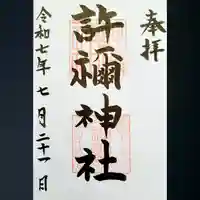 奉拝
許禰神社
令和七年七月二十一日